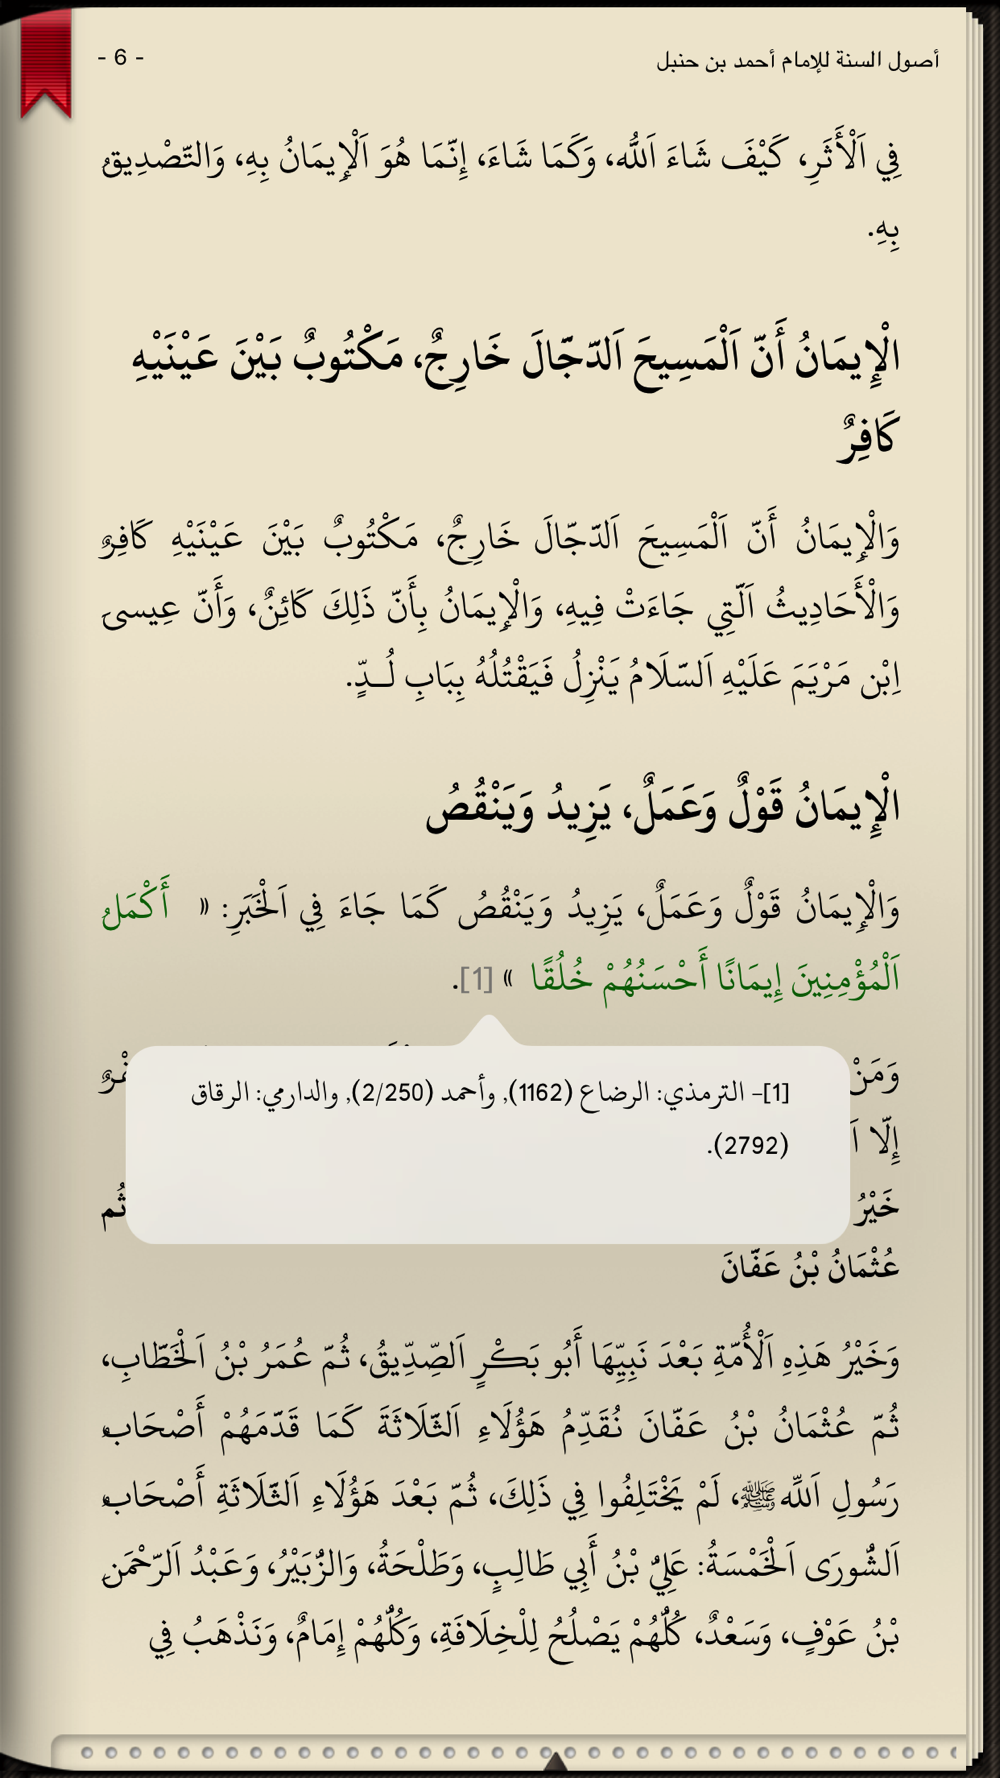 أصول السنة للإمام أحمد بن حنبل
- 6 -
فِي اَلْأَثَرِ، كَيْفَ شَاءَ اَللَّه، وَكَمَا شَاءَ، إِنّمَا هُوَ اَلْإِيمَانُ بِهِ، وَالتّصْدِيقُ
بِهِ.
الْإِيمَانُ أَنّ اَلْمَسِيحَ اَلدّجّالَ خَارِجٌ، مَكْتُوبٌ بَيْنَ عَيْنَيْهِ
كَافِرٌ
وَالْإِيمَانُ أَنّ اَلْمَسِيحَ اَلدّجّالَ خَارِجٌ، مَكْتُوبٌ بَيْنَ عَيْنَيْهِ كَافِرٌ
وَالْأَحَادِيثُ اَلّتِي جَاءَتْ فِيهِ، وَالْإِيمَانُ بِأَنّ ذَلِكَ كَائِنٌ، وَأَنّ عِيسَى
اِبْن مَرْيَمَ عَلَيْهِ اَلسّلَامُ يَنْزِلُ فَيَقْتُلُهُ بِبَابِ لُــدٍّ.
الْإِيمَانُ قَوْلٌ وَعَمَلٌ، يَزِيدُ وَيَنْقُصُ
وَالْإِيمَانُ قَوْلٌ وَعَمَلٌ، يَزِيدُ وَيَنْقُصُ كَمَا جَاءَ فِي اَلْخَبَرِ: « أَكْمَلُ
اَلْمُؤْمِنِينَ إِيمَانًا أَحْسَنُهُمْ خُلُقًا » [1].
وَمَنْ
[1]- الترمذي: الرضاع (1162), وأحمد (2/250), والدارمي: الرقاق
(2792).
إِلّا
خَيْرُ ثُم
عُثْمَانُ بْنُ عَفّانَ
وَخَيْرُ هَذِهِ اَلْأُمّةِ بَعْدَ نَبِيِّهَا أَبُو بَكْرٍ اَلصِّدِّيقُ، ثُمّ عُمَرُ بْنُ اَلْخَطّابِ،
ثُمّ عُثْمَانُ بْنُ عَفّانَ نُقَدِّمُ هَؤُلَاءِ اَلثّلَاثَةَ كَمَا قَدّمَهُمْ أَصْحَابُ
رَسُولِ اَللَّهِ ﷺ، لَمْ يَخْتَلِفُوا فِي ذَلِكَ، ثُمّ بَعْدَ هَؤُلَاءِ اَلثّلَاثَةِ أَصْحَابُ
اَلشُّورَى اَلْخَمْسَةُ: عَلِيُّ بْنُ أَبِي طَالِبٍ، وَطَلْحَةُ، وَالزُّبَيْرُ، وَعَبْدُ اَلرّحْمَنِ
بْنُ عَوْفٍ، وَسَعْدٌ، كُلُّهُمْ يَصْلُحُ لِلْخِلَافَةِ، وَكُلُّهُمْ إِمَامٌ، وَنَذْهَبُ فِي